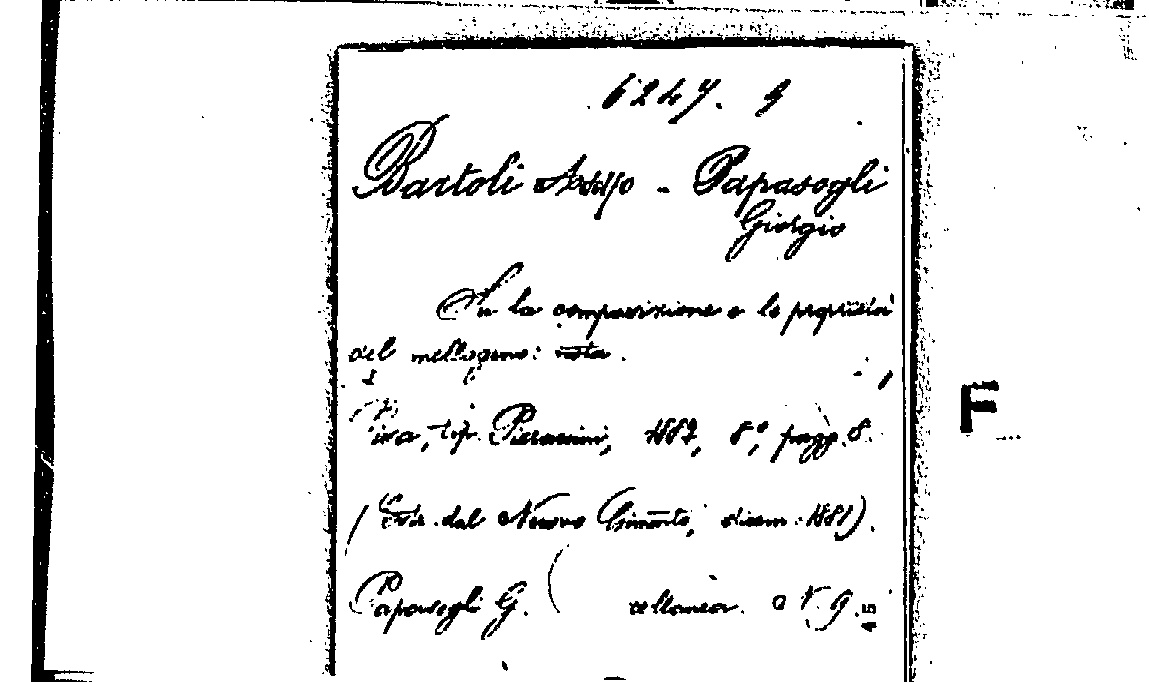 6247. 9
Bartoli Adolfo - Papasogli
Giorgio
Su la composizione e le proprietà
del mellogeno: nota.
Pisa, tip. Pieraccini, 1882, 8°, pagg. 8.
(Estr. dal Nuovo Cimento, dicem. 1881).
Papasogli G. ( cellanea. 9.
F